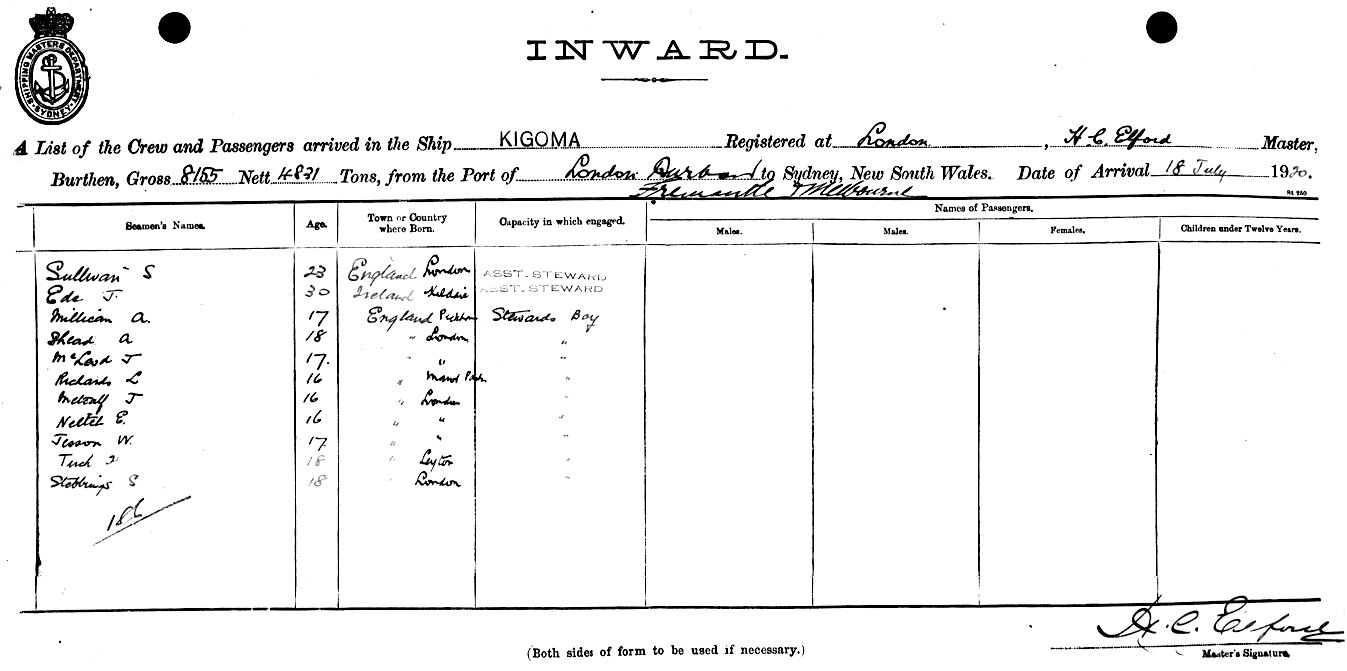 SHIPPING MASTERS DEPARTMENT SYDNEY
INWARD.
A List of the Crew and Passengers arrived in the Ship KIGOMA Registered at London, H. C. Elford Master,
Burthen, Gross 8155 Nett 4831 Tons, from the Port of London Durban to Sydney, New South Wales. Date of Arrival 18 July 1920.
Fremantle & Melbourne
Seamen's Names. Age. Town or Country where Born. Capacity in which engaged. Names of Passengers.
Males. Males. Females. Children under Twelve Years.
Sullivan S 23 England London ASST. STEWARD
Ede J. 30 Ireland Kildare ASST. STEWARD
Millican A. 17 England Peckham Stewards Boy
Shead A 18 " London "
McLeod J 17. " " "
Richards L 16 " Park. "
Metcalf J 16 " London "
E. 16 " " "
Jesson W. 17 " " "
18 " Leyton "
Stebbings S 18 " London "
186
H. C. Elford
Master's Signature.
(Both sides of form to be used if necessary.)